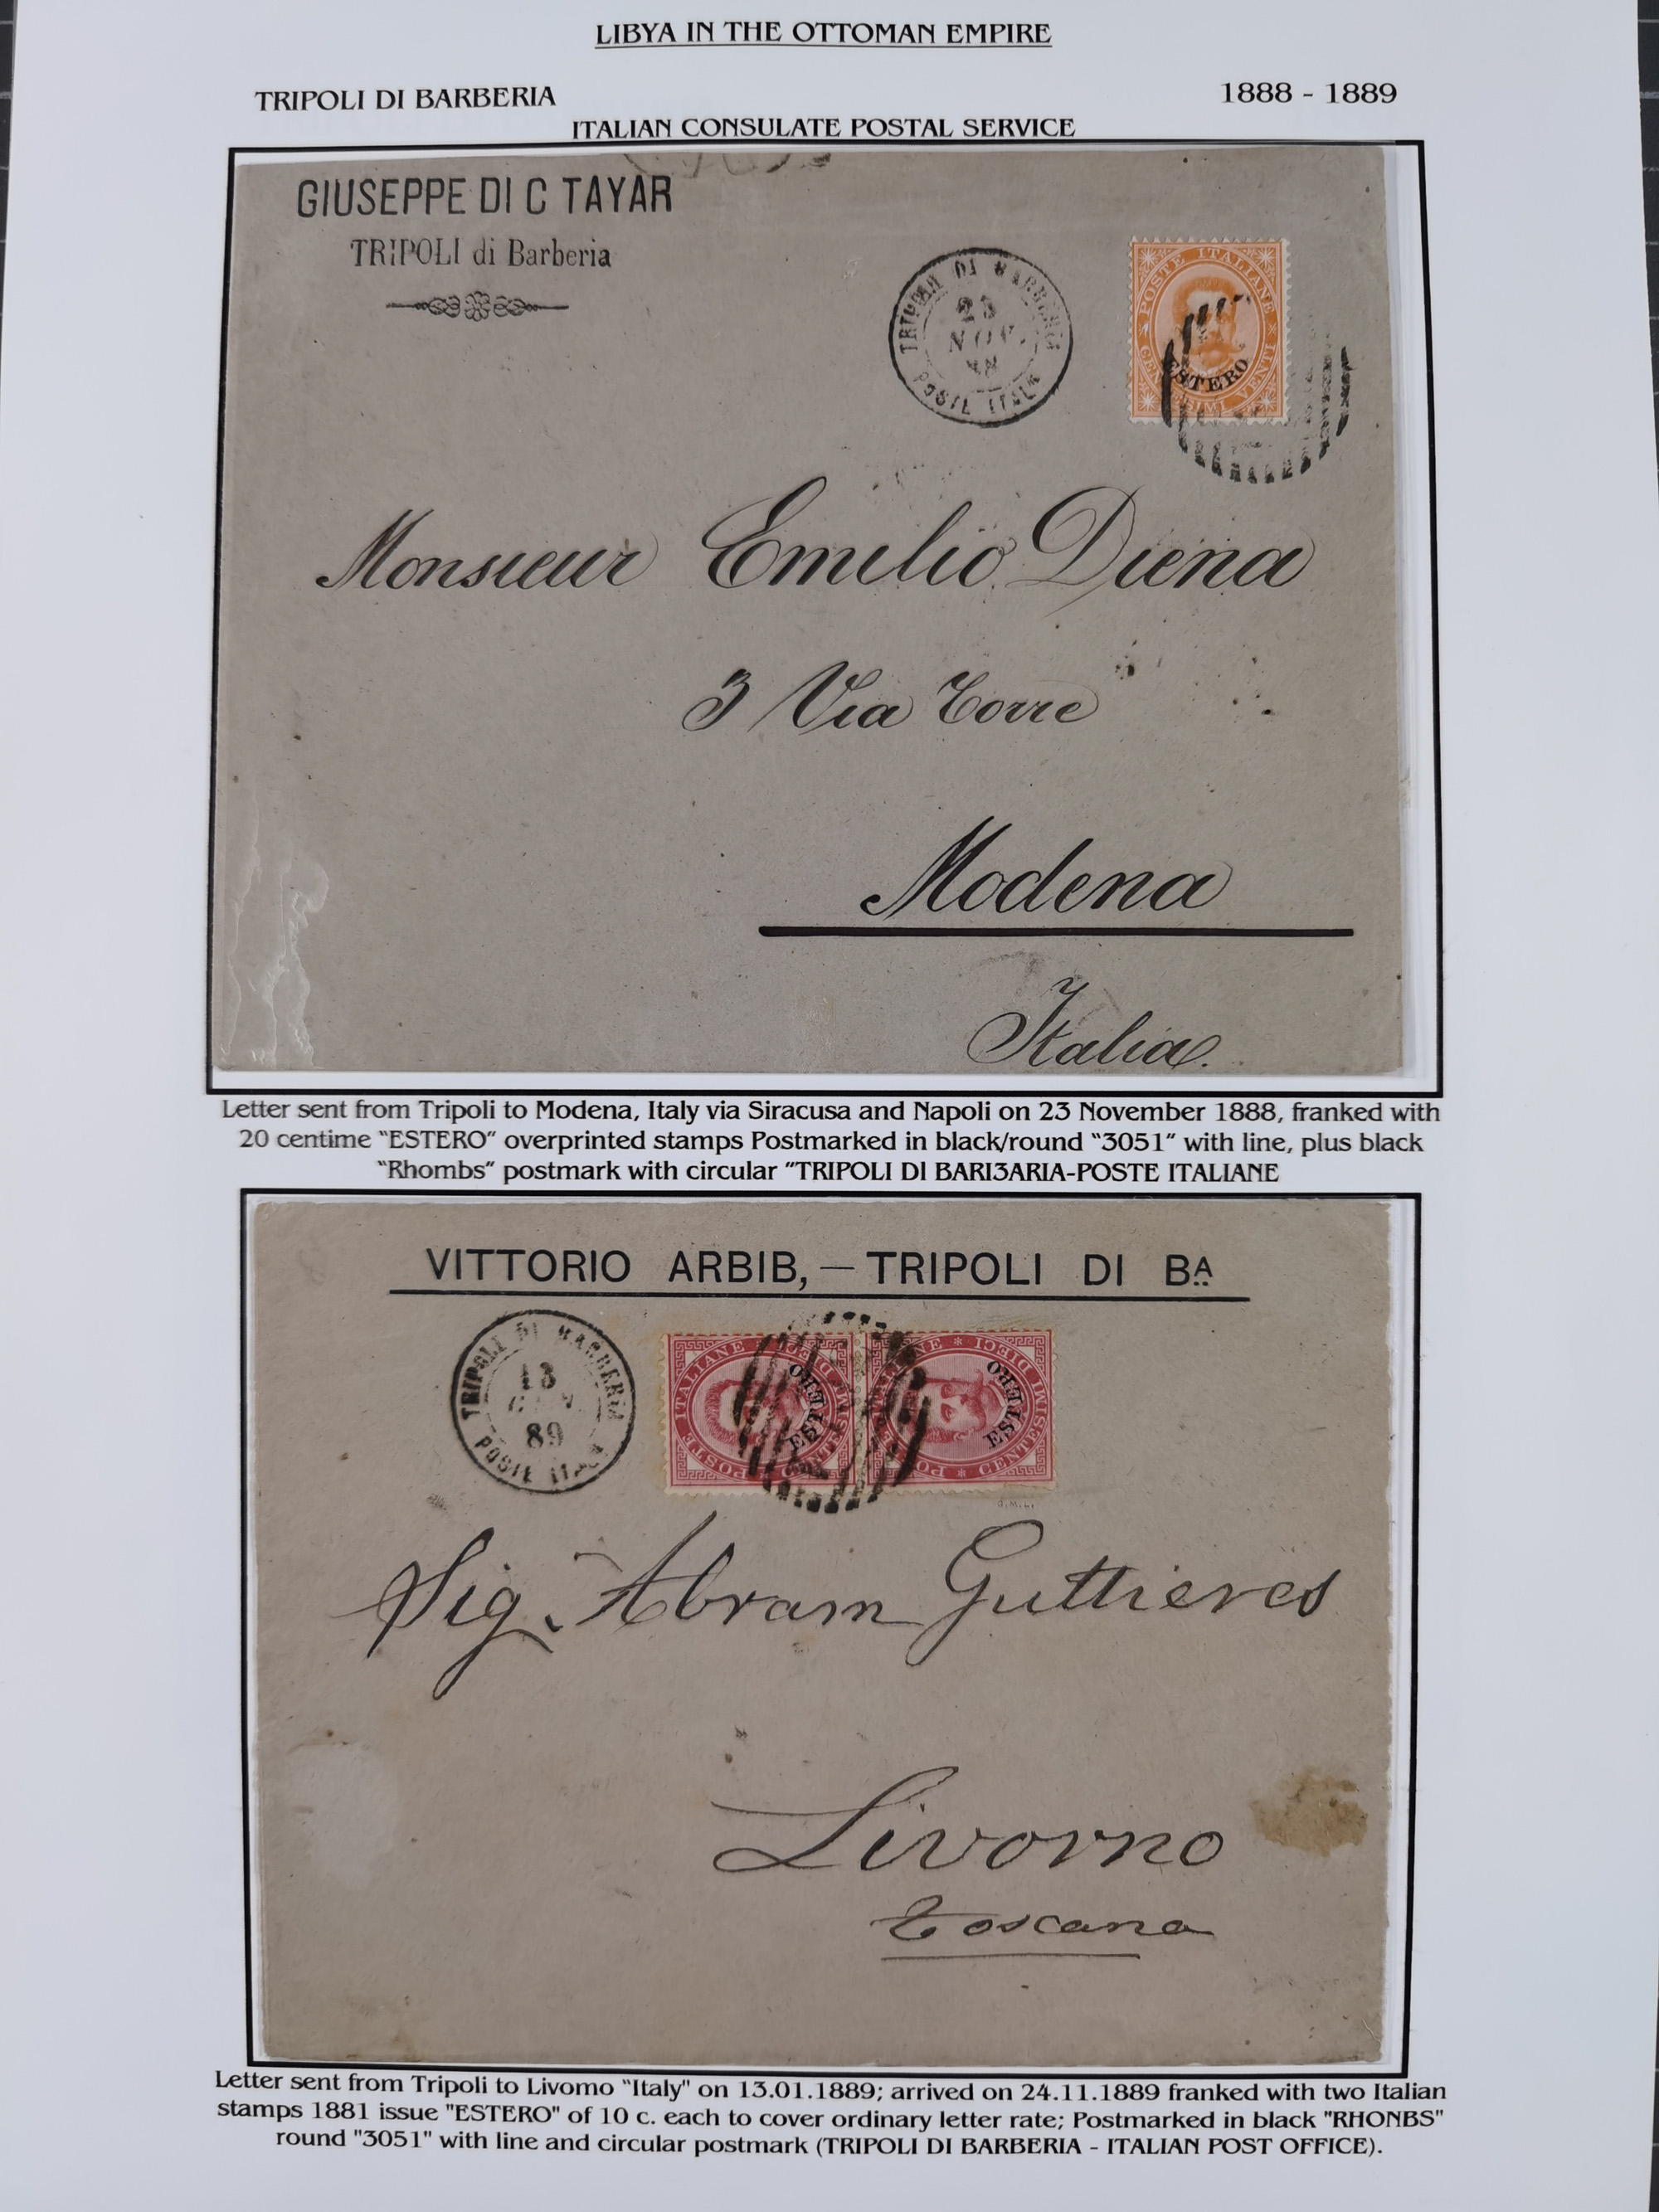 LIBYA IN THE OTTOMAN EMPIRE
TRIPOLI DI BARBERIA
1888 - 1889
ITALIAN CONSULATE POSTAL SERVICE
GIUSEPPE DI C TAYAR
TRIPOLI di Barberia
TRIPOLI DI BARBERIA
23
NOV.
POSTE ITAL
POSTE ITALIANE
VENTI
ESTERO
Monsieur Emilio Diena
3 Via Torre
Modena
Italia.
Letter sent from Tripoli to Modena, Italy via Siracusa and Napoli on 23 November 1888, franked with
20 centime "ESTERO" overprinted stamps Postmarked in black/round "3051" with line, plus black
"Rhombs" postmark with circular "TRIPOLI DI BARI3ARIA-POSTE ITALIANE
VITTORIO ARBIB, — TRIPOLI DI BA
TRIPOLI DI BARBERIA
13
89
POSTE ITAL
POSTE ITALIANE
ESTERO
ESTERO
Sig. Abram Guttieres
Livorno
Toscana
Letter sent from Tripoli to Livomo "Italy" on 13.01.1889; arrived on 24.11.1889 franked with two Italian
stamps 1881 issue "ESTERO" of 10 c. each to cover ordinary letter rate; Postmarked in black "RHONBS"
round "3051" with line and circular postmark (TRIPOLI DI BARBERIA - ITALIAN POST OFFICE).